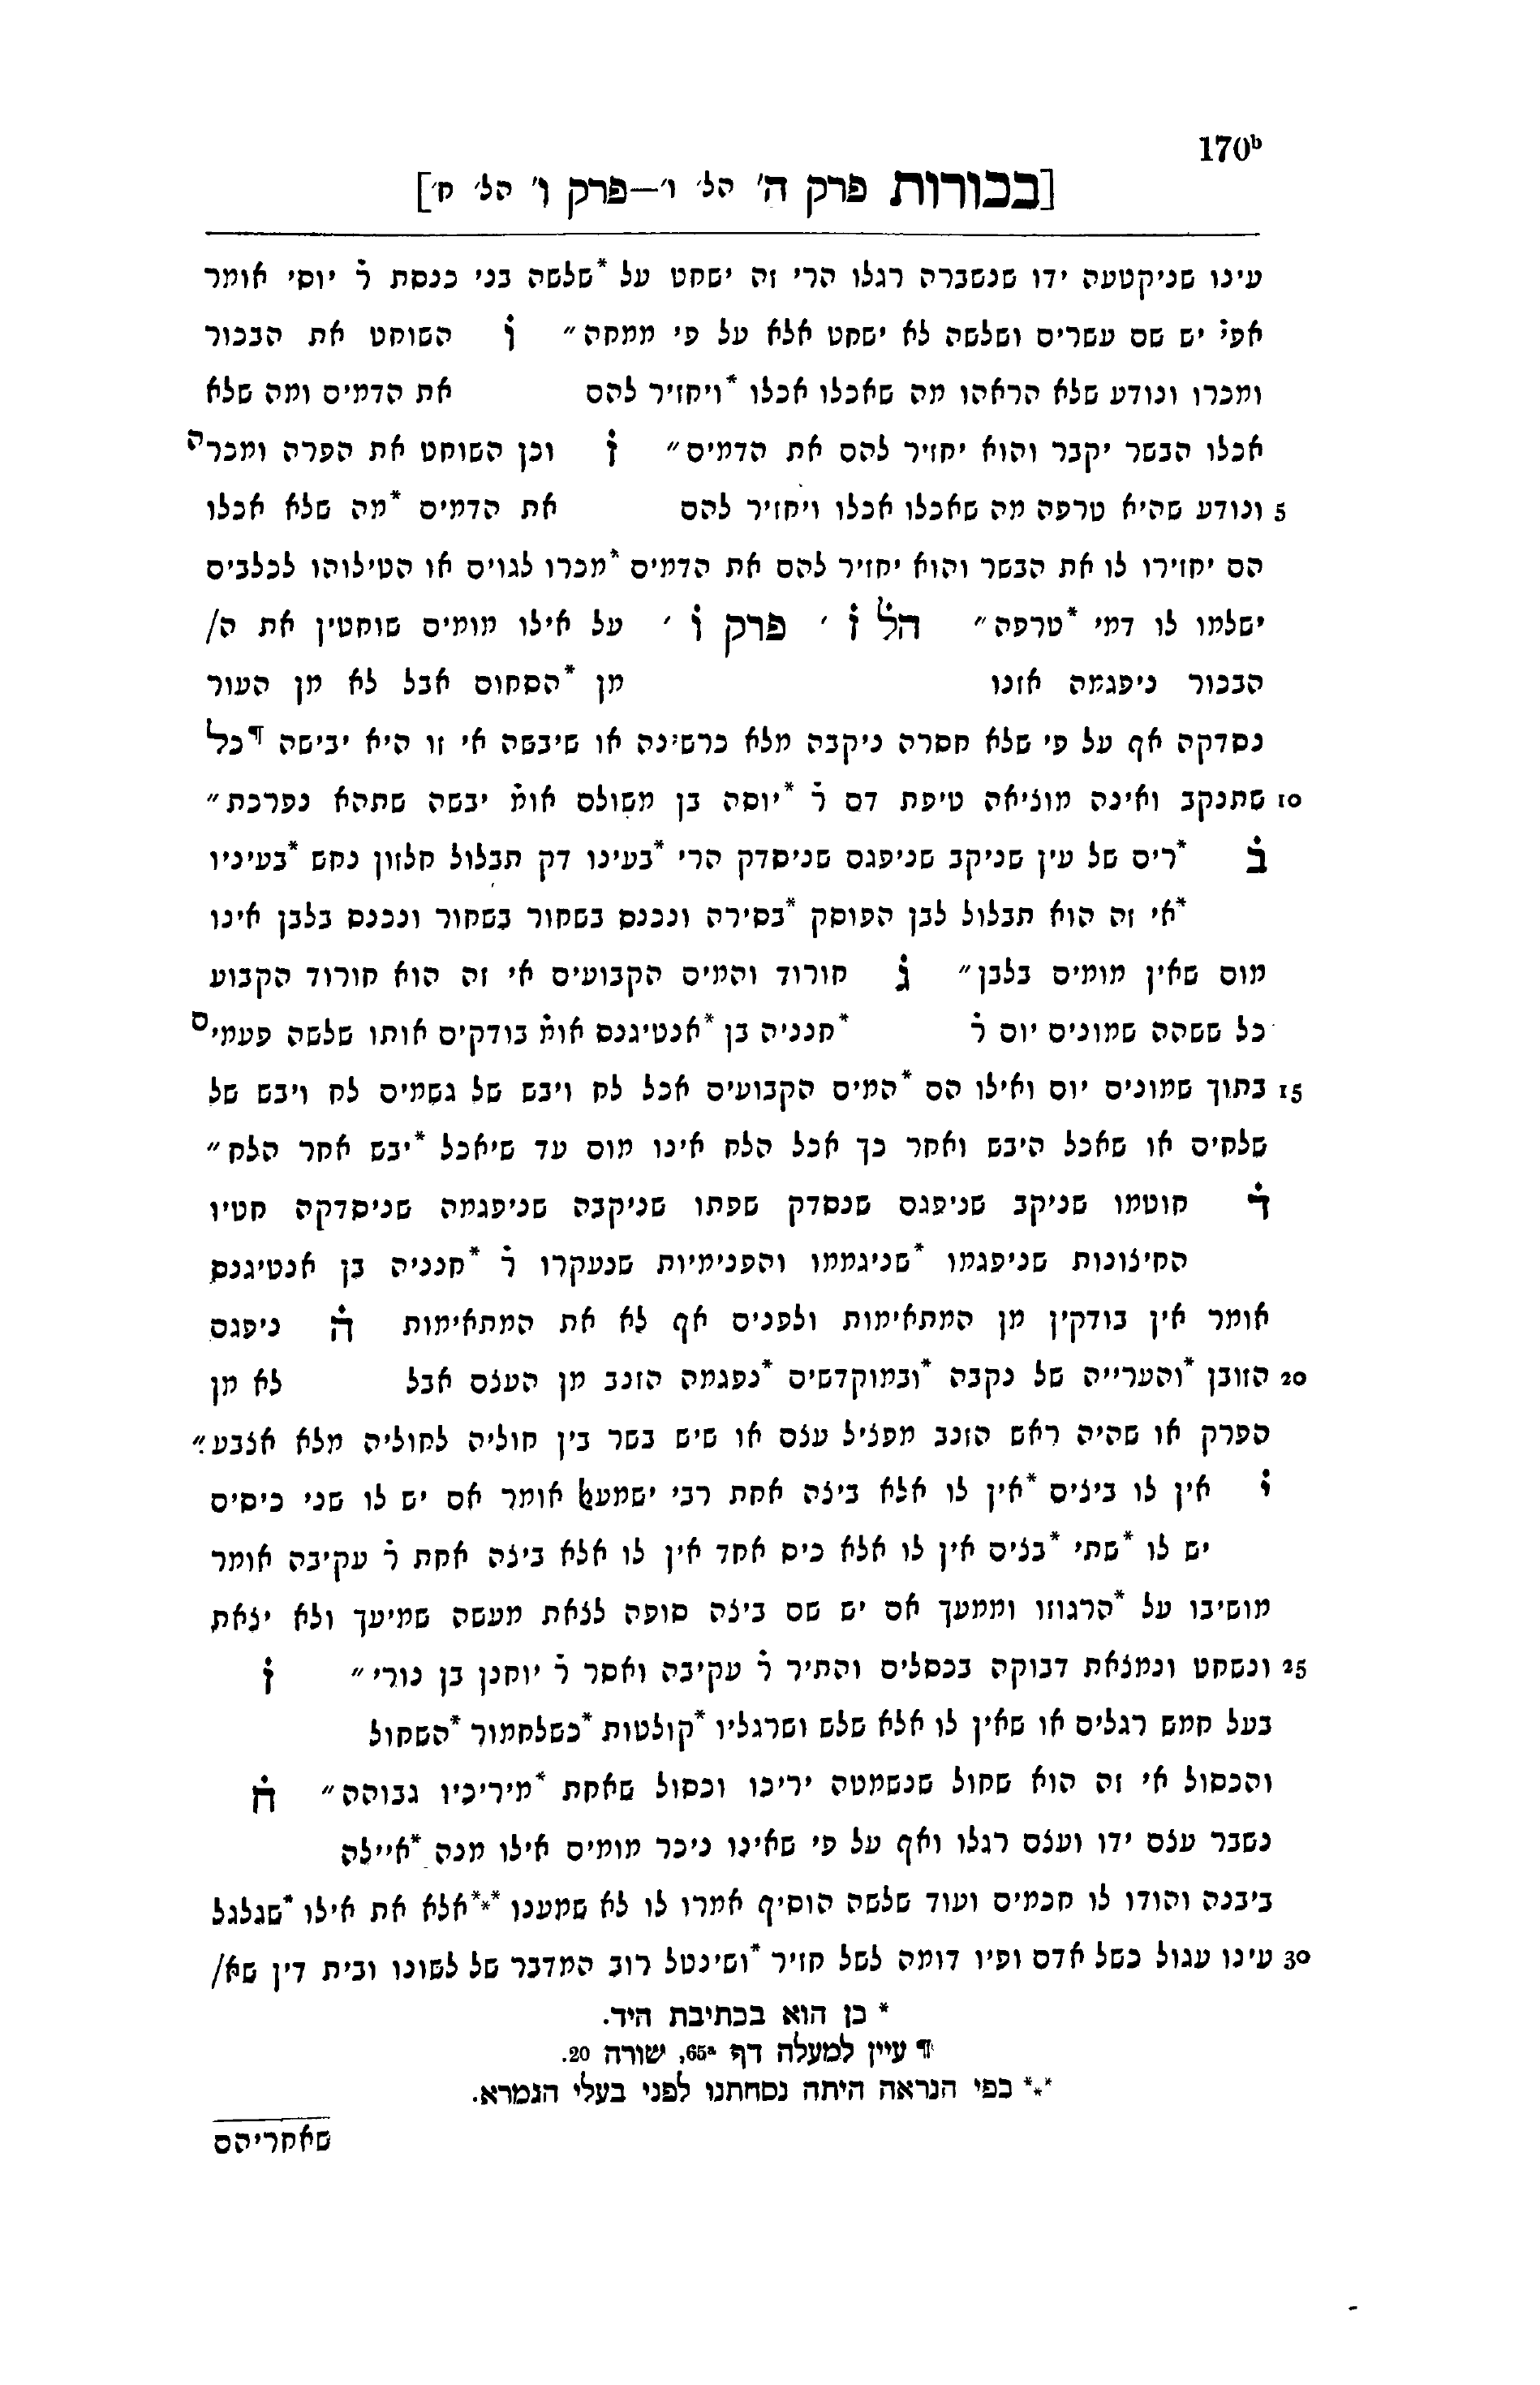 170ᵇ
[בכורות פרק ה' הל' ו'—פרק ו' הל' ח']
עינו שניקטעה ידו שנשברה רגלו הרי זה ישחט על *שלשה בני כנסת ר̇ יוסי אומר
אפי̇ יש שם עשרים ושלשה לא ישחט אלא על פי ממחה״ ו̇ השוחט את הבכור
ומכרו ונודע שלא הראהו מה שאכלו אכלו *ויחזיר להם את הדמים ומה שלא
אכלו הבשר יקבר והוא יחזיר להם את הדמים״ ז̇ וכן השוחט את הפרה ומכרה
5 ונודע שהיא טרפה מה שאכלו אכלו ויחזיר להם את הדמים *מה שלא אכלו
הם יחזירו לו את הבשר והוא יחזיר להם את הדמים *מכרו לגוים או הטילוהו לכלבים
ישלמו לו דמי *טרפה״ הל̇ ז̇ ׳ פרק ו̇ ׳ על אילו מומים שוחטין את ה/
הבכור ניפגמה אזנו מן *הסחוס אבל לא מן העור
נסדקה אף על פי שלא חסרה ניקבה מלא כרשינה או שיבשה אי זו היא יבישה ¶כל
10 שתנקב ואינה מוציאה טיפת דם ר̇ *יוסה בן משולם אומ̇ יבשה שתהא נפרכת״
ב̇ *ריס של עין שניקב שניפגם שניסדק הרי *בעינו דק תבלול חלזון נחש *בעיניו
*אי זה הוא תבלול לבן הפוסק *בסירה ונכנס בשחור בשחור ונכנס בלבן אינו
מום שאין מומים בלבן״ ג̇ חורוד והמים הקבועים אי זה הוא חורוד הקבוע
כל ששהה שמונים יום ר̇ *חנניה בן *אנטיגנס אומ̇ בודקים אותו שלשה פעמים
15 בתוך שמונים יום ואילו הם *המים הקבועים אכל לח ויבש של גשמים לח ויבש של
שלחים או שאכל היבש ואחר כך אכל הלח אינו מום עד שיאכל *יבש אחר הלח״
ד̇ חוטמו שניקב שניפגם שנסדק שפתו שניקבה שניפגמה שניסדקה חטיו
החיצונות שניפגמו *שניגממו והפנימיות שנעקרו ר̇ *חנניה בן אנטיגנס
אומר אין בודקין מן המתאימות ולפנים אף לא את המתאימות ה̇ ניפגם
20 הזובן *והערייה של נקבה *ובמוקדשים *נפגמה הזנב מן העצם אבל לא מן
הפרק או שהיה ראש הזנב מפציל עצם או שיש בשר בין חוליה לחוליה מלא אצבע״
ו̇ אין לו ביצים *אין לו אלא ביצה אחת רבי ישמעאל אומר אם יש לו שני כיסים
יש לו *שתי *בצים אין לו אלא כיס אחד אין לו אלא ביצה אחת ר̇ עקיבה אומר
מושיבו על *הרגוזו וממעך אם יש שם ביצה סופה לצאת מעשה שמיעך ולא יצאת
25 ונשחט ונמצאת דבוקה בכסלים והתיר ר̇ עקיבה ואסר ר̇ יוחנן בן נורי״ ז̇
בעל חמש רגלים או שאין לו אלא שלש ושרגליו *קולטות *כשלחמור *השחול
והכסול אי זה הוא שחול שנשמטה יריכו וכסול שאחת *מיריכיו גבוהה״ ח̇
נשבר עצם ידו ועצם רגלו ואף על פי שאינו ניכר מומים אילו מנה *איילה
ביבנה והודו לו חכמים ועוד שלשה הוסיף אמרו לו לא שמענו *⁎*אלא את אילו *שגלגל
30 עינו עגול כשל אדם ופיו דומה לשל חזיר *ושינטל רוב המדבר של לשונו ובית דין שא/
* כן הוא בכתיבת היד.
¶ עיין למעלה דף 65ᵃ, שורה 20.
*⁎* כפי הנראה היתה נסחתנו לפני בעלי הגמרא.
שאחריהם